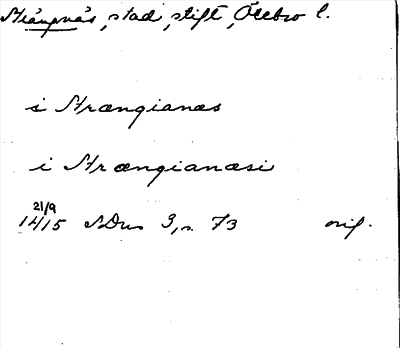 Strängnäs, stad, stift, Örebro l.
i Strængianæs
i Strængianæsi
21/9
1415 SDns 3, s. 73 orig.